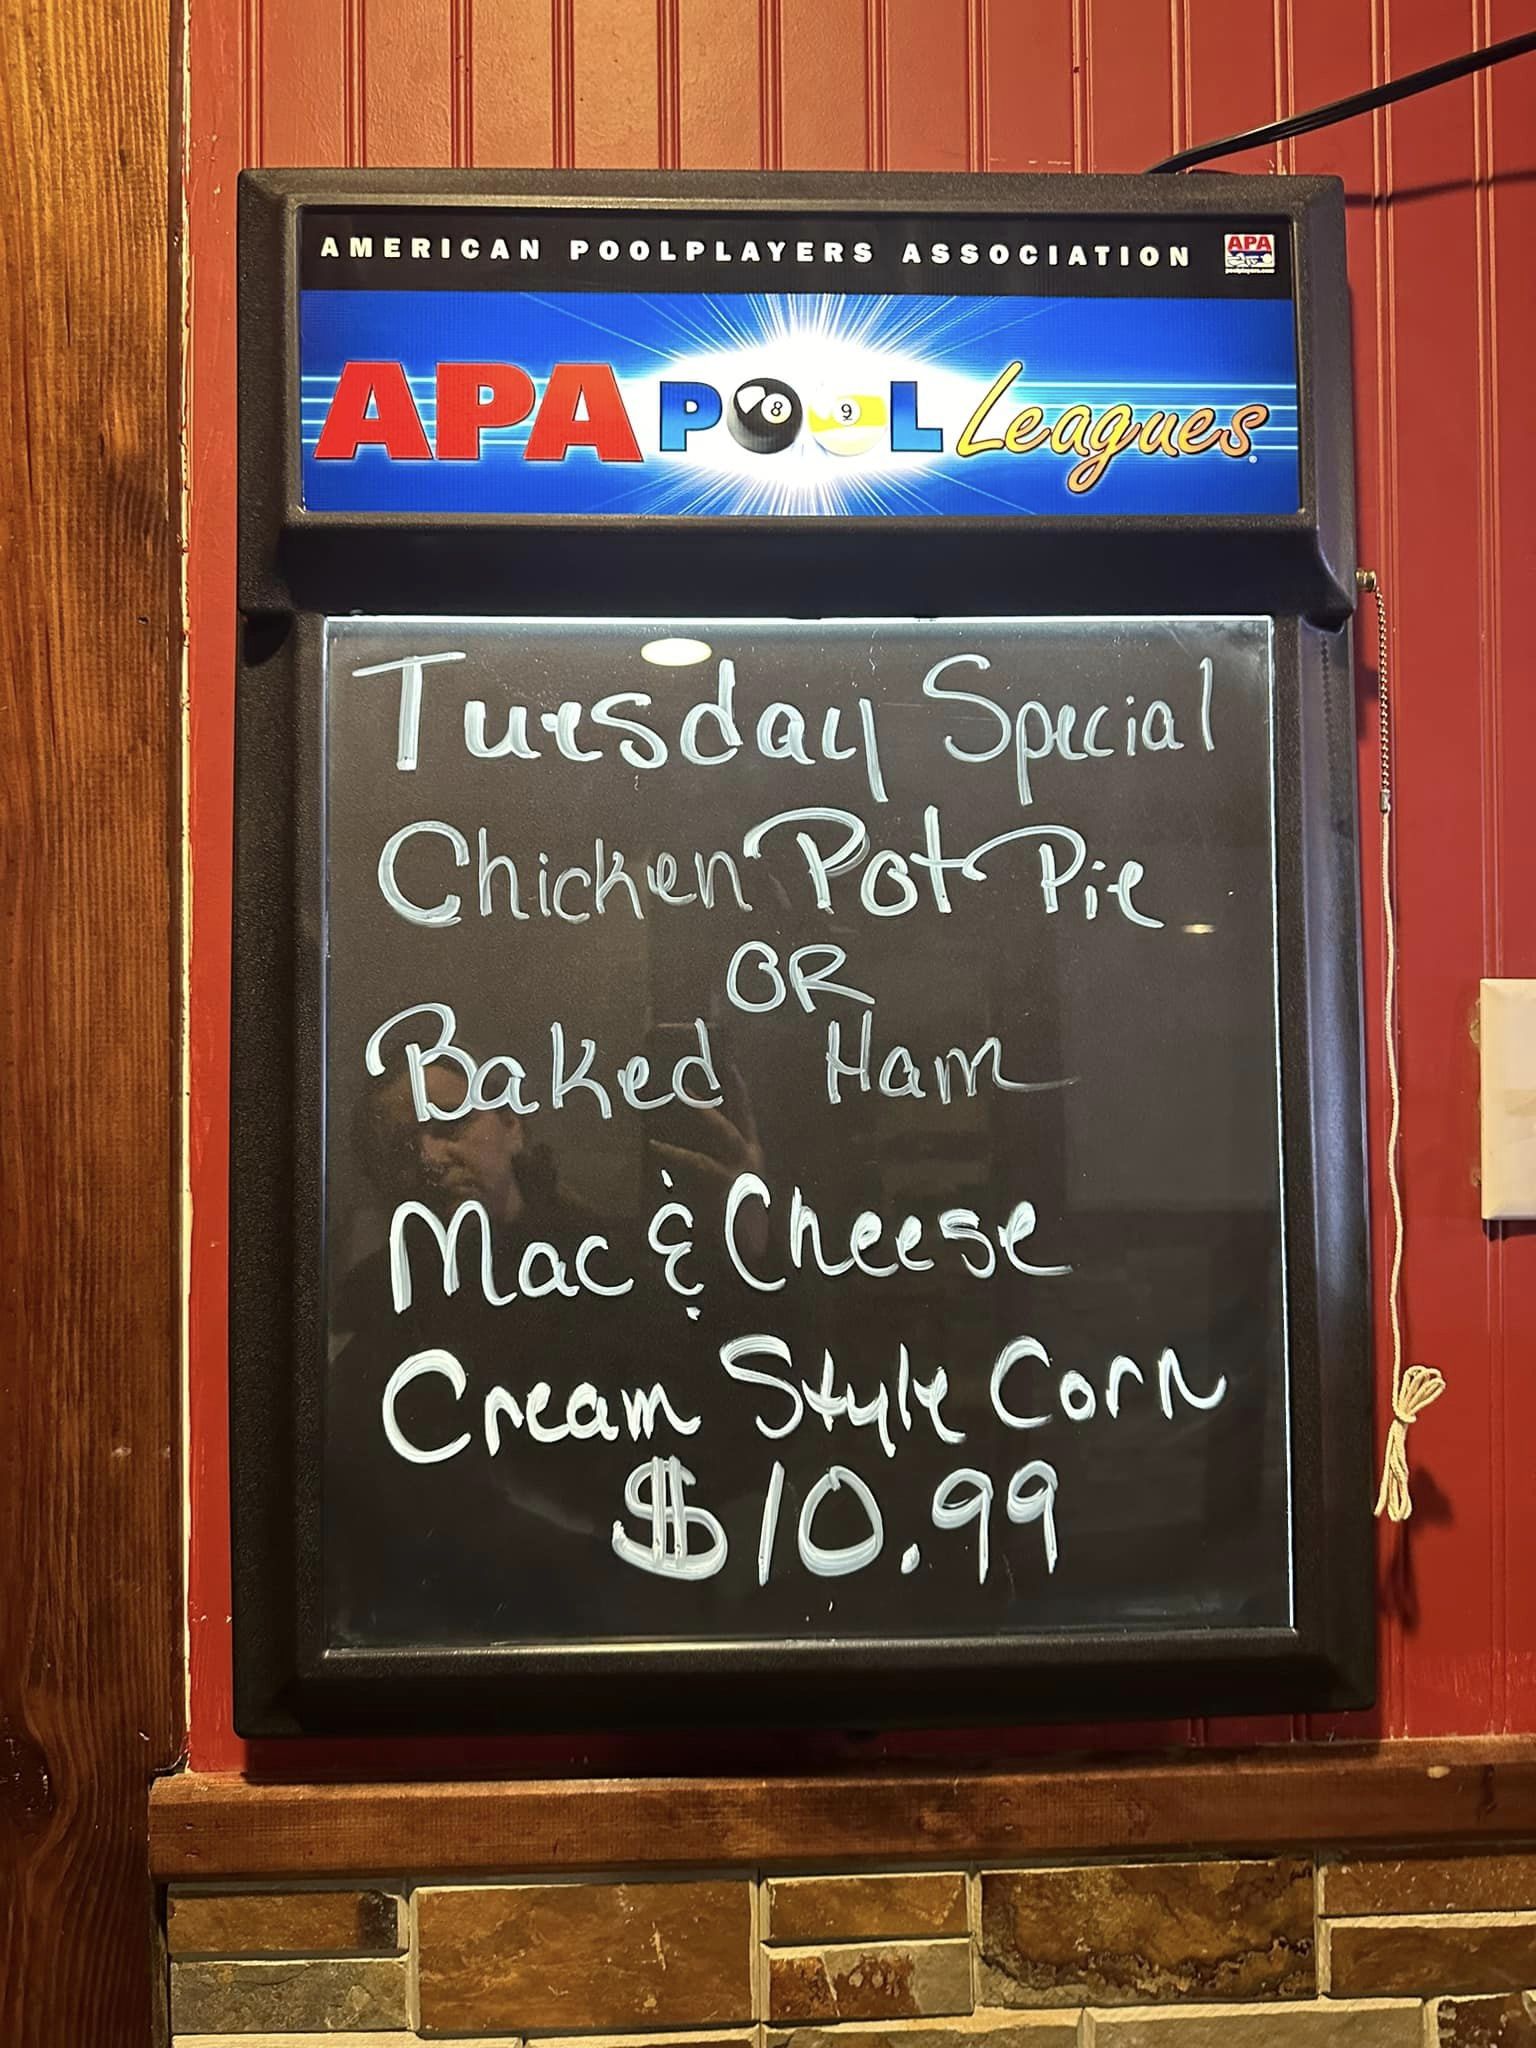 AMERICAN POOLPLAYERS ASSOCIATION
APA
poolplayers.com
APA POOL Leagues®
8
9
Tuesday Special
Chicken Pot Pie
OR
Baked Ham
Mac & Cheese
Cream Style Corn
$10.99